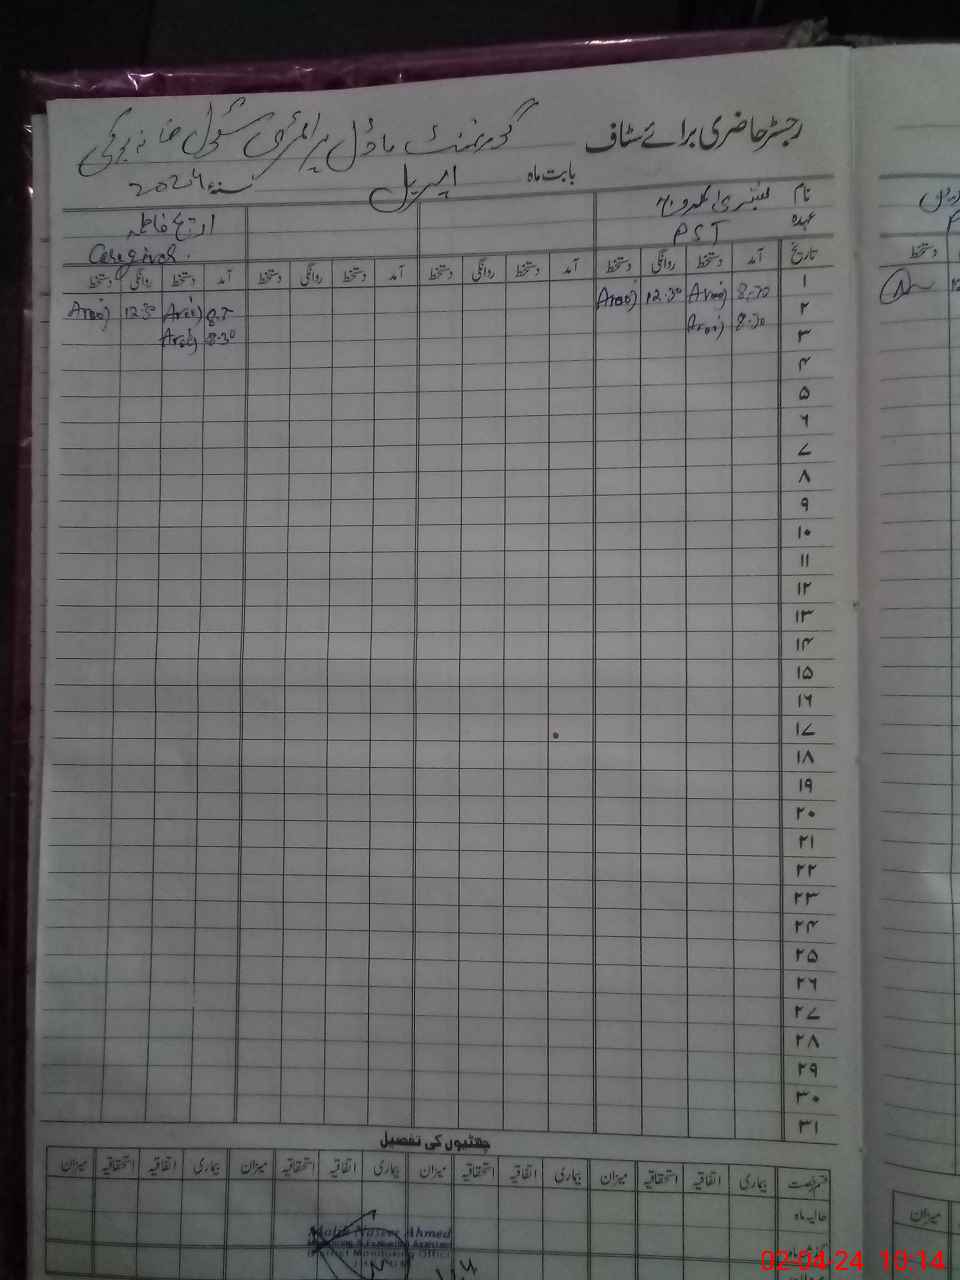 رجسٹر حاضری برائے سٹاف گورنمنٹ ماڈل پرائمری سکول
بابت ماہ اپریل سنہ 2024
نام
ارج فاطمہ
عہدہ PST
Caregiver.
تاریخ آمد دستخط روانگی دستخط آمد دستخط روانگی دستخط آمد دستخط روانگی دستخط آمد دستخط روانگی دستخط
۱ 8:30 Arooj 12:30 Arooj 8:30 Arooj 12:30 Arooj
۲ 8:30 Arooj 8:30 Arooj
۳
۴
۵
۶
۷
۸
۹
۱۰
۱۱
۱۲
۱۳
۱۴
۱۵
۱۶
۱۷
۱۸
۱۹
۲۰
۲۱
۲۲
۲۳
۲۴
۲۵
۲۶
۲۷
۲۸
۲۹
۳۰
۳۱
چھٹیوں کی تفصیل
قسم رخصت بیماری اتفاقیہ استحقاقیہ میزان بیماری اتفاقیہ استحقاقیہ میزان بیماری اتفاقیہ استحقاقیہ میزان بیماری اتفاقیہ استحقاقیہ میزان
حالیہ ماہ
Ahmed
District Monitoring Office
دستخط
میزان
02-04-24 10:14